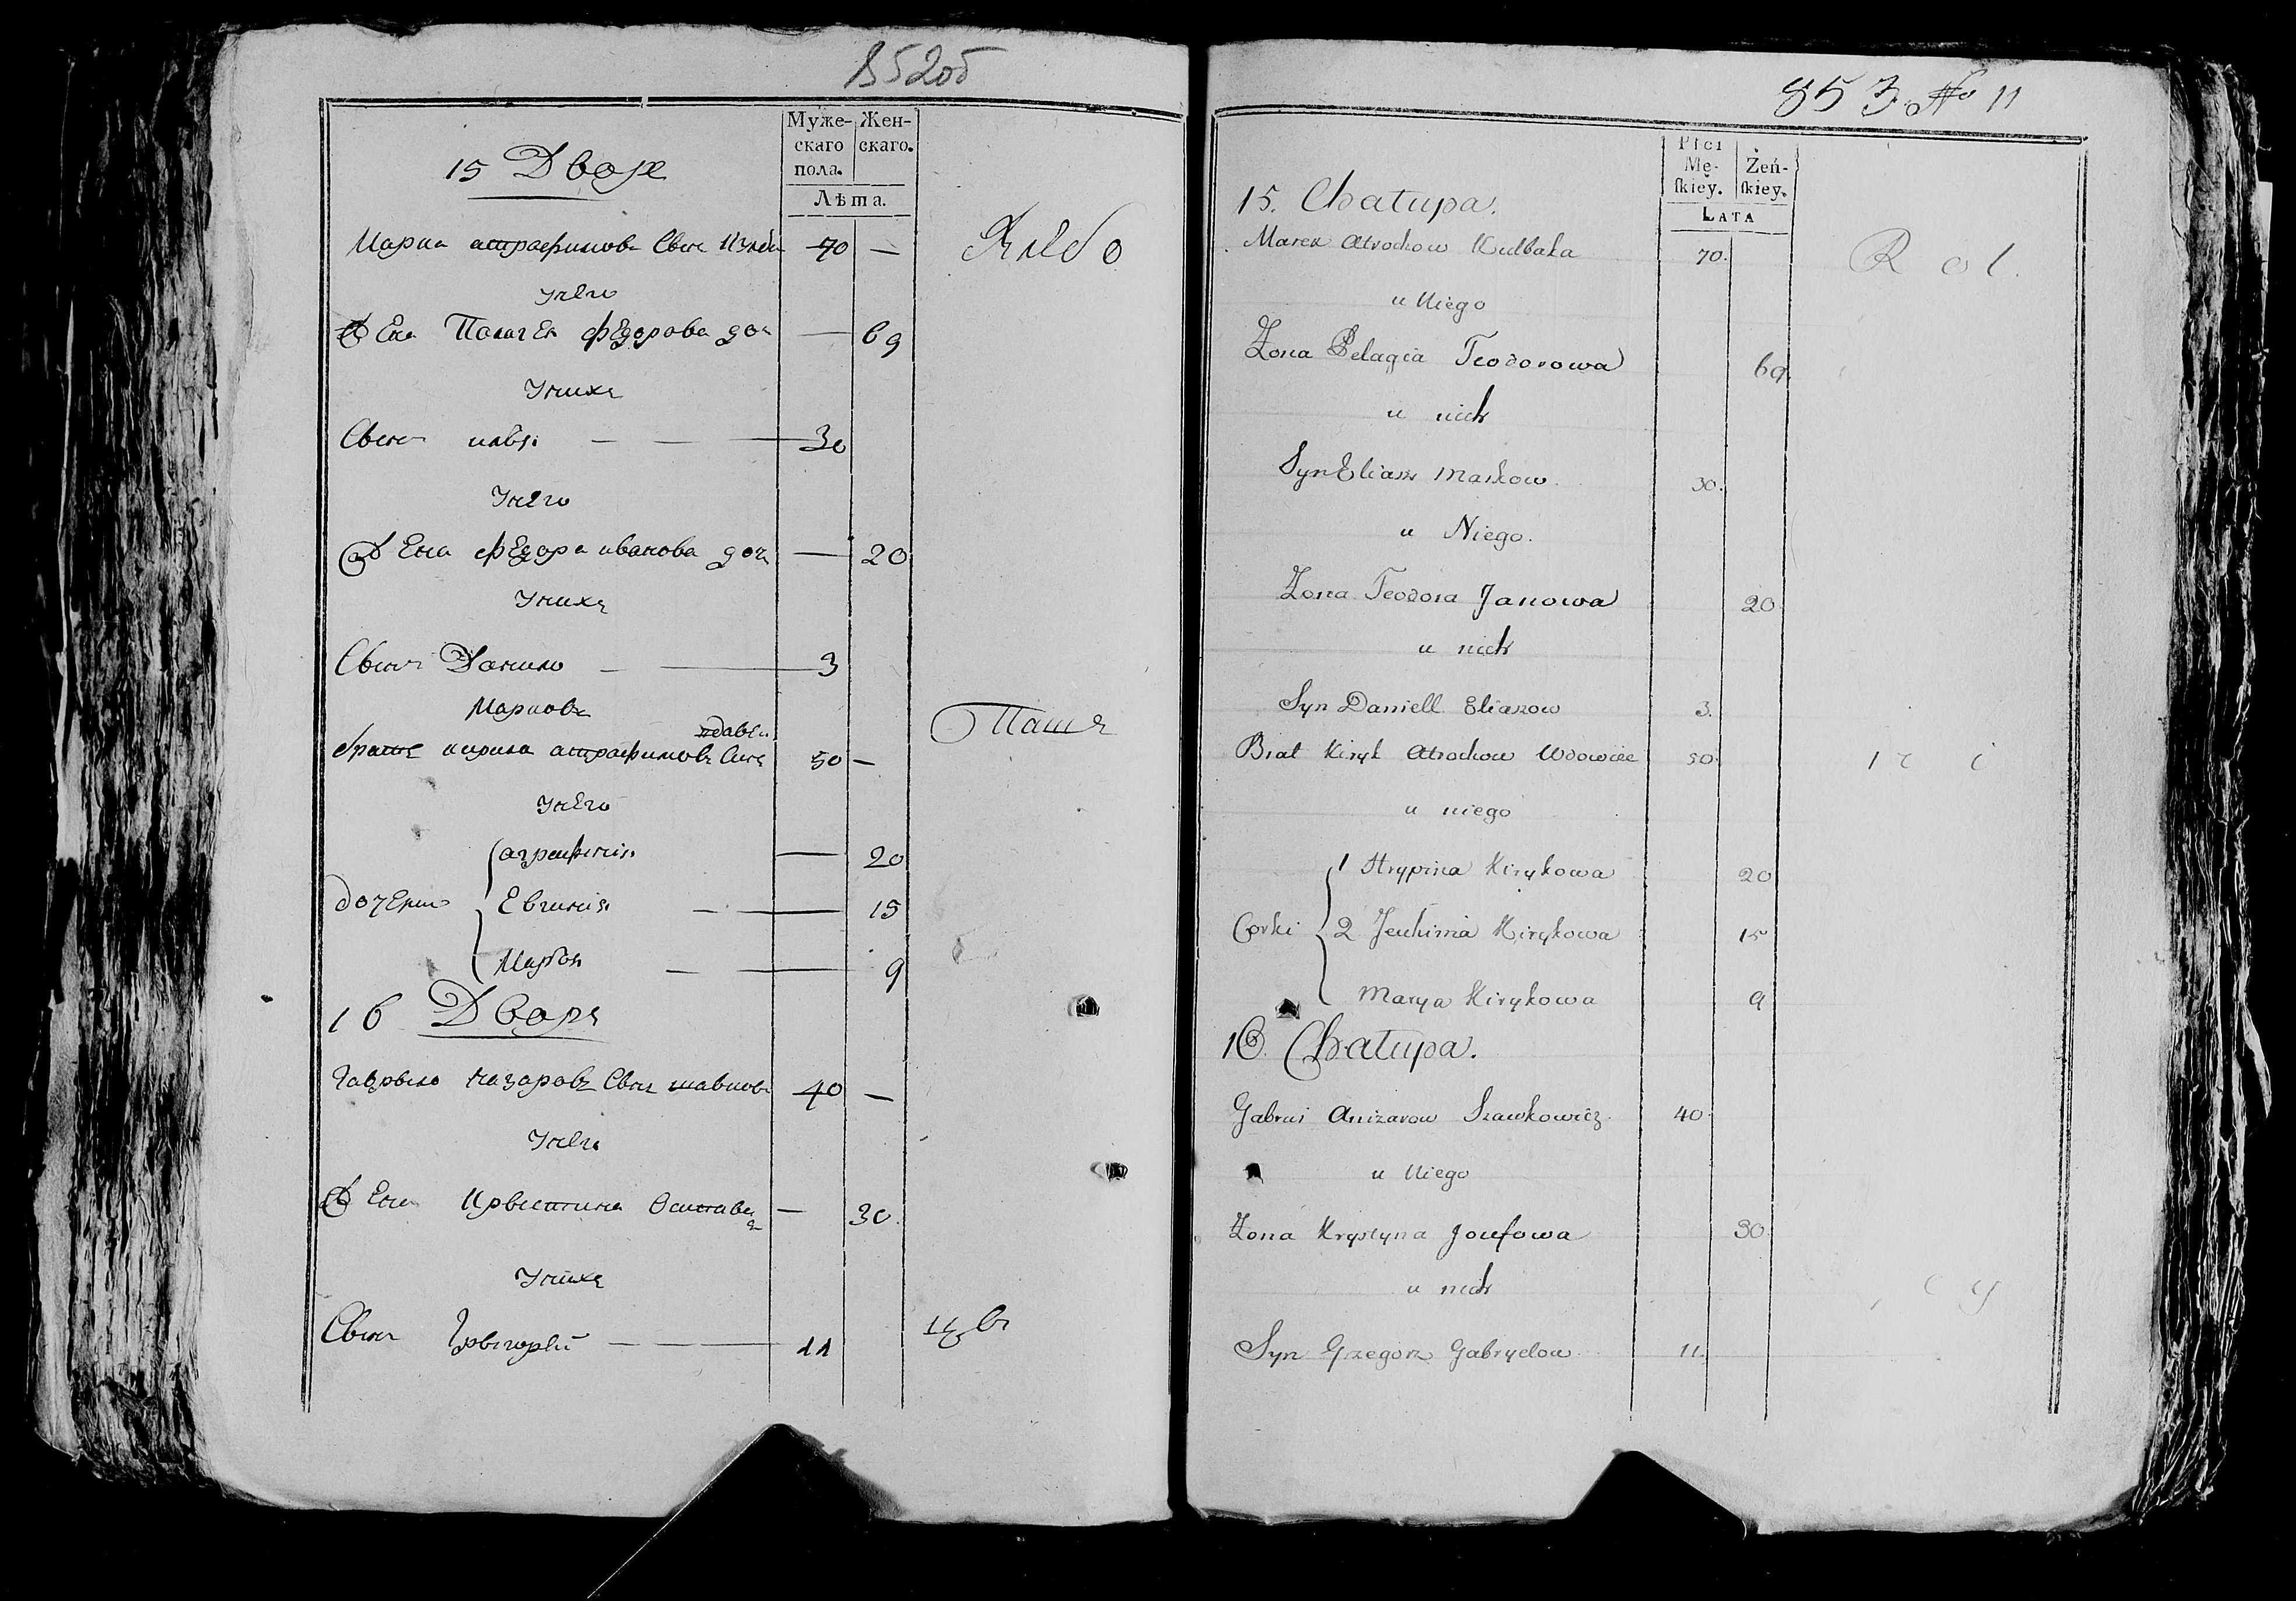 852об
Муже-
скаго
пола.
Жен-
скаго.
Лѣта.
15 Дворъ
70 —
Хлѣбо
У него
Жена Пелагея Федорова доч — 69
У нихъ
Сынъ илья — — 30
У него
Жена Федора иванова доч — 20
У нихъ
Сынъ Данило — — 3
Марковъ
братъ кирила 50 —
Паше
У него
агрефинія — 20
дочери Евгинія — — 15
Марья — — 9
16 Дворъ
Гаврыло назаровъ Сынъ 40 —
У него
Жена Крыстина — 30.
У нихъ
Сынъ Грыгорей — — 11
853. No 11
Płci
Mę-
skiey.
Żeń-
skiey.
LATA
15. Chałupa.
Marek Atrochow Kulbaka 70.
R o l.
u Niego
Żona Pelagia Teodorowa 69.
u nich
Syn Eliasz Markow 30.
u Niego.
Żona Teodora Janowa 20
u nich
Syn Daniell Eliaszow 3.
Brat Kiryk Atrochow Wdowiec 50.
u niego
1 Hrypina Kirykowa 20
Corki 2 Jeuhimia Kirykowa 15
Marya Kirykowa 9
16. Chałupa.
Szawkowicz. 40.
u Niego
Żona Krystyna Jozefowa 30.
u nich
Syn Grzegorz Gabryelow 11.